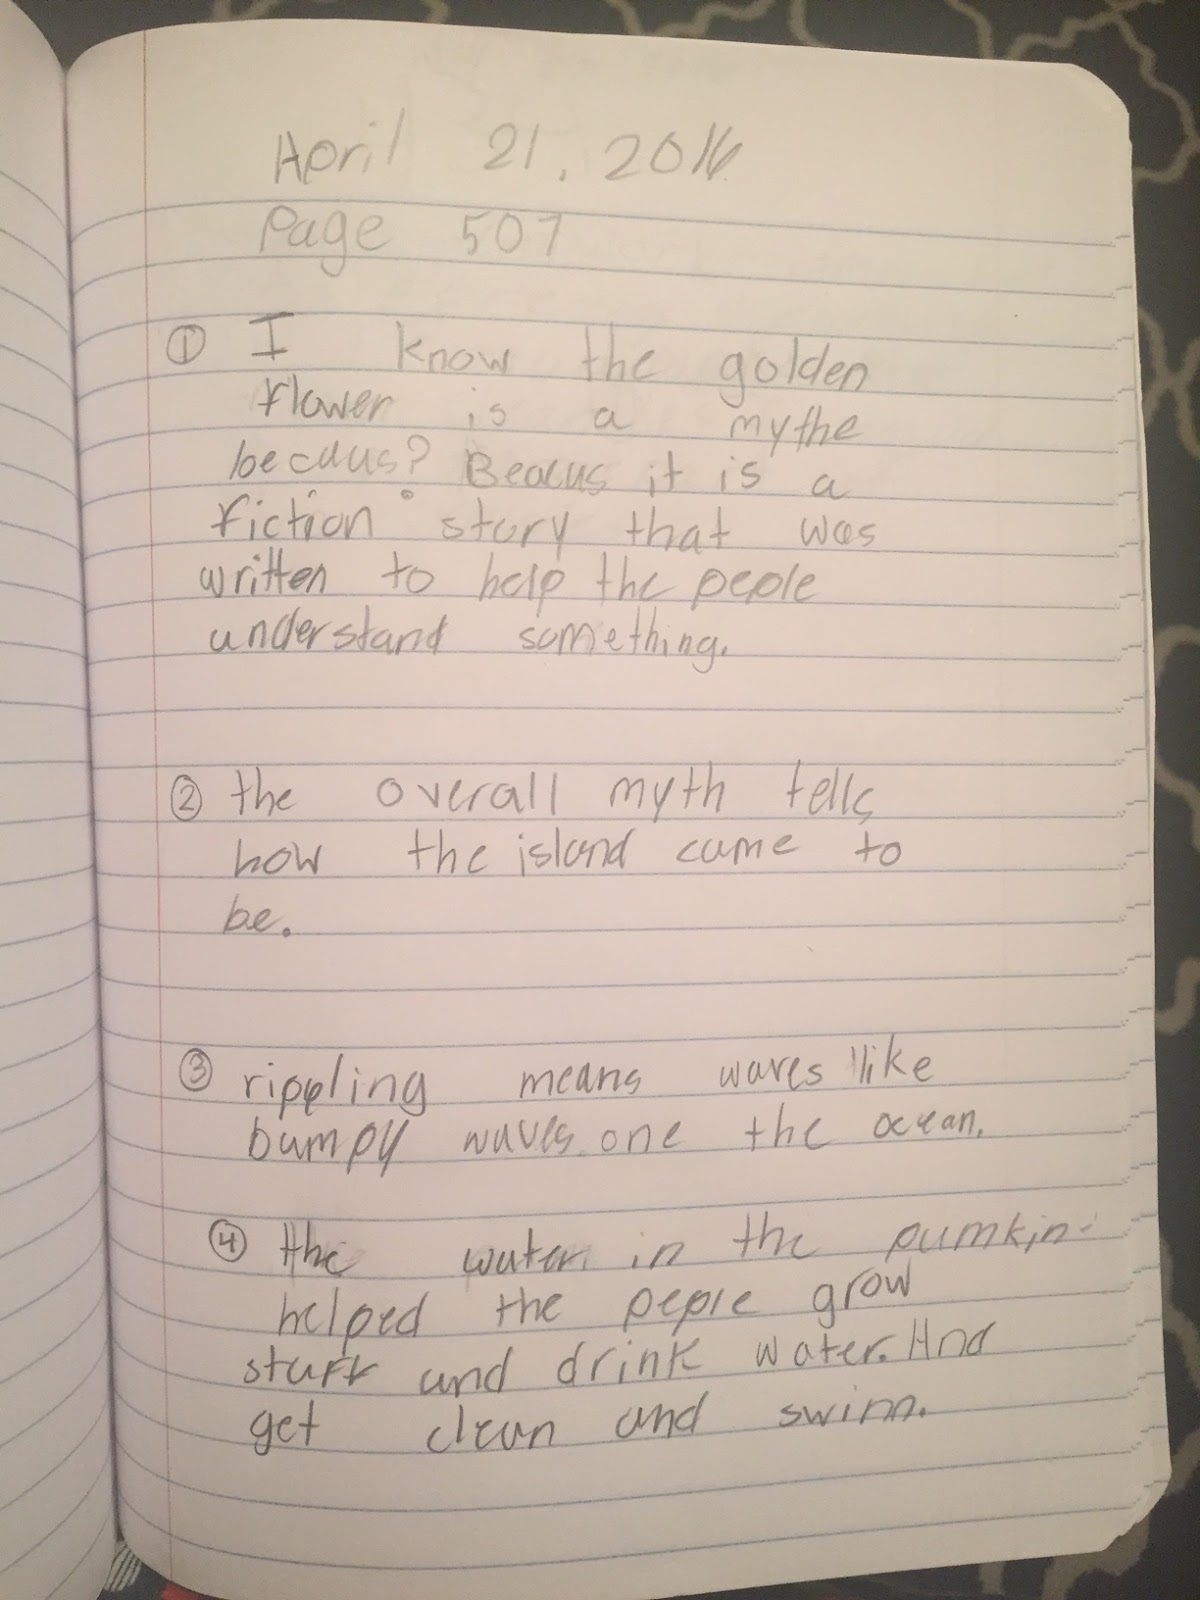 April 21, 2016
Page 507
① I know the golden
flower is a mythe
becaus? Beacus it is a
fiction story that was
written to help the peple
understand something.
② the overall myth tells
how the island came to
be.
③ rippling means waves like
bumpy waves one the ocean.
④ the water in the pumkin
helped the peple grow
stuff and drink water. And
get clean and swim.